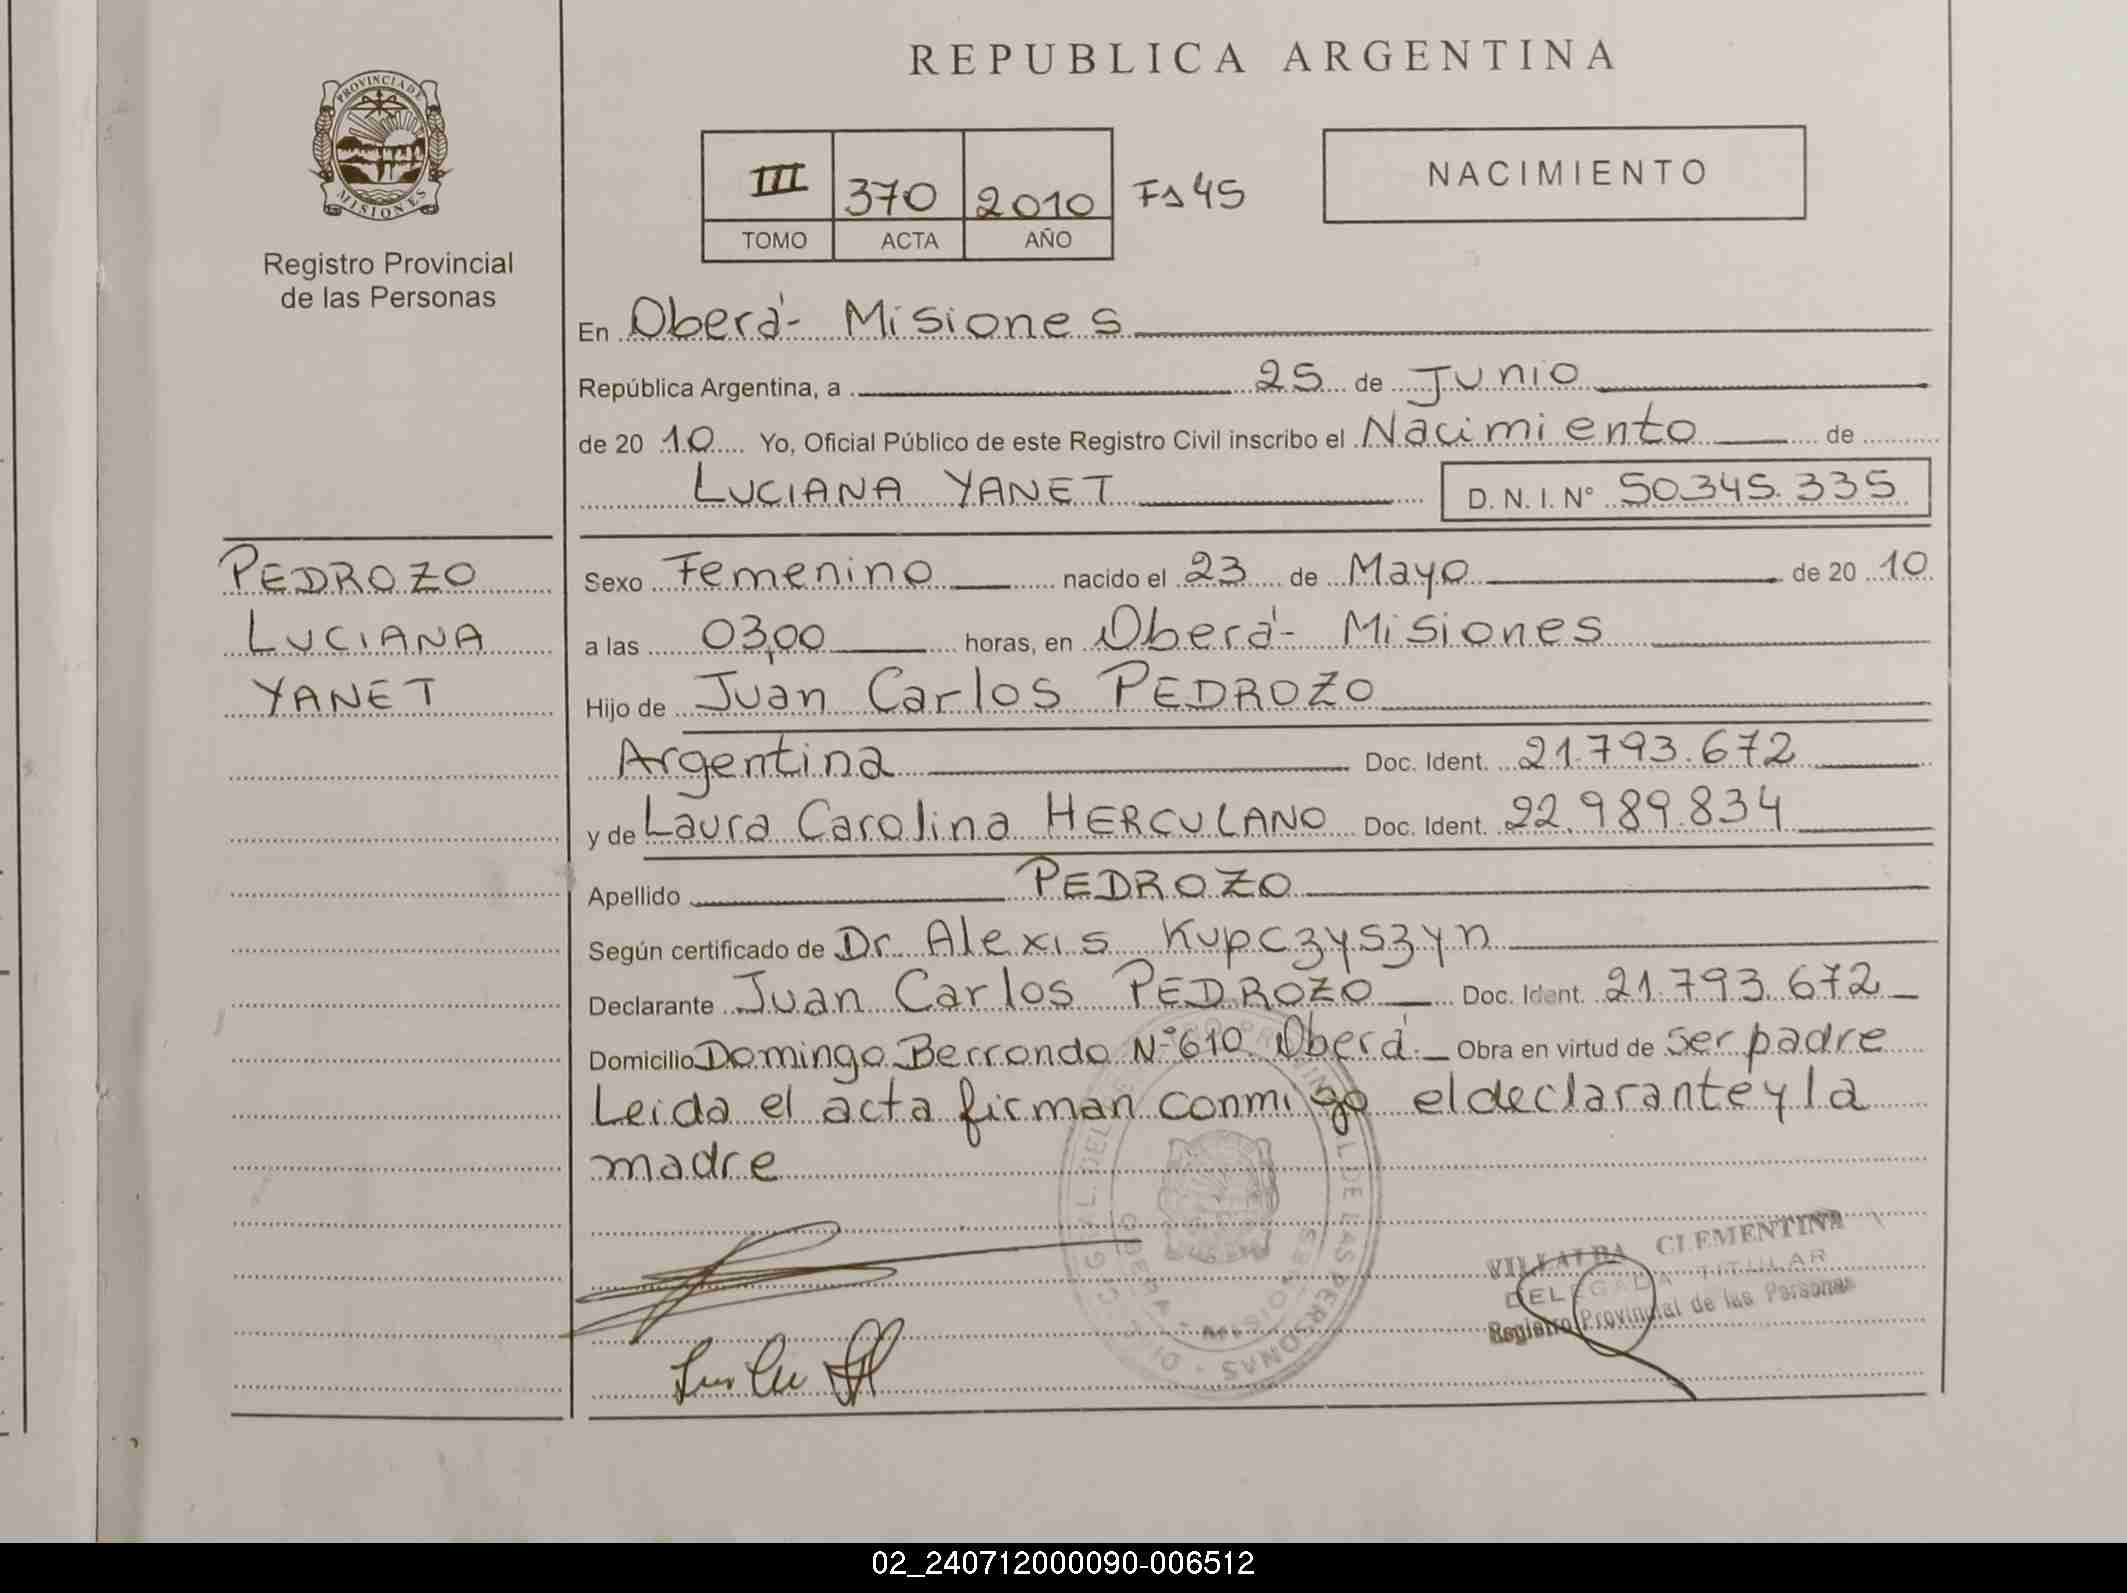 REPUBLICA ARGENTINA
PROVINCIA DE
MISIONES
Registro Provincial
de las Personas
III 370 2010 Fs 45
TOMO ACTA AÑO
NACIMIENTO
En Oberá- Misiones
República Argentina, a 25 de Junio
de 20 10 Yo, Oficial Público de este Registro Civil inscribo el Nacimiento de
LUCIANA YANET D. N. I. N° 50.345.335
PEDROZO
LUCIANA
YANET
Sexo Femenino nacido el 23 de Mayo de 20 10
a las 03,00 horas, en Oberá- Misiones
Hijo de Juan Carlos PEDROZO
Argentina Doc. Ident. 21.793.672
y de Laura Carolina HERCULANO Doc. Ident. 22.989.834
Apellido PEDROZO
Según certificado de Dr. Alexis Kupczyszyn
Declarante Juan Carlos PEDROZO Doc. Ident. 21.793.672
Domicilio Domingo Berrondo N°610 Oberá Obra en virtud de ser padre
Leida el acta firman conmigo el declarante y la
madre
VILLALBA CLEMENTINA
DELEGADA TITULAR
Registro Provincial de las Personas
02_240712000090-006512